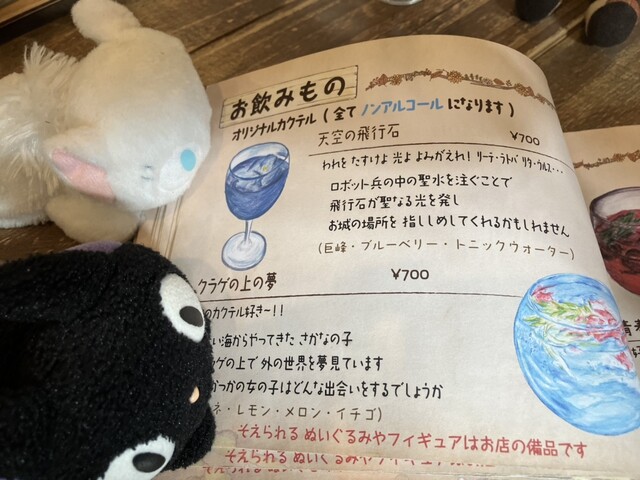 お飲みもの
オリジナルカクテル(全てノンアルコールになります)
天空の飛行石 ¥700
われを たすけよ 光よ よみがえれ! リーテ・ラトバリタ・ウルス・・・
ロボット兵の中の聖水を注ぐことで
飛行石が聖なる光を発し
お城の場所を 指ししめしてくれるかもしれません
(巨峰・ブルーベリー・トニックウォーター)
クラゲの上の夢 ¥700
のカクテル好き〜!!
い海からやってきた さかなの子
ラゲの上で 外の世界を夢見ています
かつかの女の子はどんな出会いをするでしょうか
ネ・レモン・メロン・イチゴ)
そえられる ぬいぐるみやフィギュアはお店の備品です